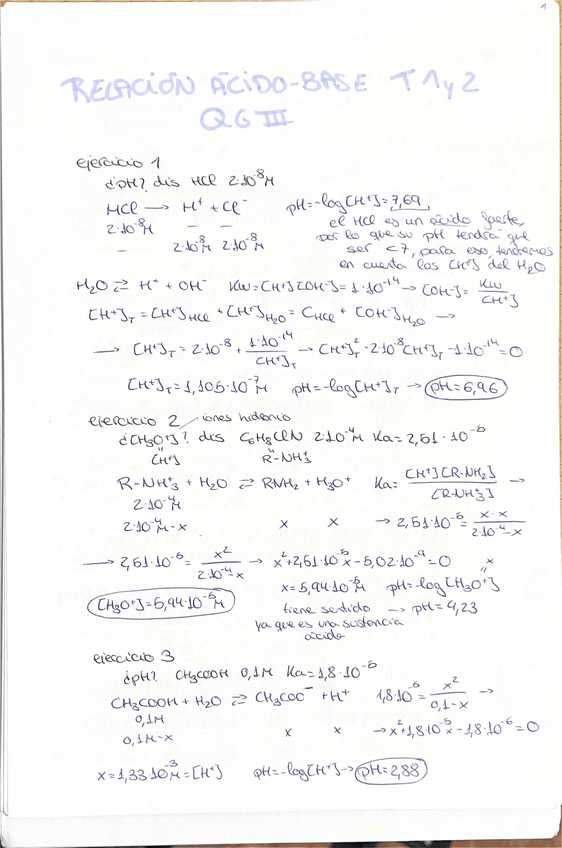 1
RELACIÓN ÁCIDO-BASE T 1 y 2
QG III
ejercicio 1
¿pH? dis HCl 2·10⁻⁸M
HCl → H⁺ + Cl⁻ pH=-log[H⁺]=7,69,
2·10⁻⁸M — — el HCl es un ácido fuerte,
— 2·10⁻⁸M 2·10⁻⁸M por lo que su pH tendrá que
ser <7, para eso, tendremos
en cuenta los [H⁺] del H₂O
H₂O ⇄ H⁺ + OH⁻ Kw=[H⁺][OH⁻]=1·10⁻¹⁴ → [OH⁻]= Kw/[H⁺]
[H⁺]T = [H⁺]HCl + [H⁺]H₂O = CHCl + [OH⁻]H₂O →
→ [H⁺]T = 2·10⁻⁸ + 1·10⁻¹⁴/[H⁺]T → [H⁺]T² - 2·10⁻⁸[H⁺]T - 1·10⁻¹⁴ = 0
[H⁺]T = 1,105·10⁻⁷M pH=-log[H⁺]T → pH=6,96
ejercicio 2 iones hidronio
¿[H₃O⁺]? dis C₆H₈ClN 2·10⁻⁴M Ka=2,51·10⁻⁵
[H⁺] R-NH₃⁺
R-NH₃⁺ + H₂O ⇄ RNH₂ + H₃O⁺ Ka= [H⁺][R-NH₂]/[R-NH₃⁺] →
2·10⁻⁴M
2·10⁻⁴M-x x x → 2,51·10⁻⁵ = x·x/2·10⁻⁴-x
→ 2,51·10⁻⁵ = x²/2·10⁻⁴-x → x²+2,51·10⁻⁵x-5,02·10⁻⁹=0 x
[H₃O⁺]=5,94·10⁻⁵M x=5,94·10⁻⁵M pH=-log[H₃O⁺]
tiene sentido → pH=4,23
ya que es una sustancia
ácida
ejercicio 3
¿pH? CH₃COOH 0,1M Ka=1,8·10⁻⁵
CH₃COOH + H₂O ⇄ CH₃COO⁻ + H⁺ 1,8·10⁻⁵ = x²/0,1-x →
0,1M
0,1M-x x x → x²+1,8·10⁻⁵x-1,8·10⁻⁶=0
x=1,33·10⁻³M=[H⁺] pH=-log[H⁺] → pH=2,88